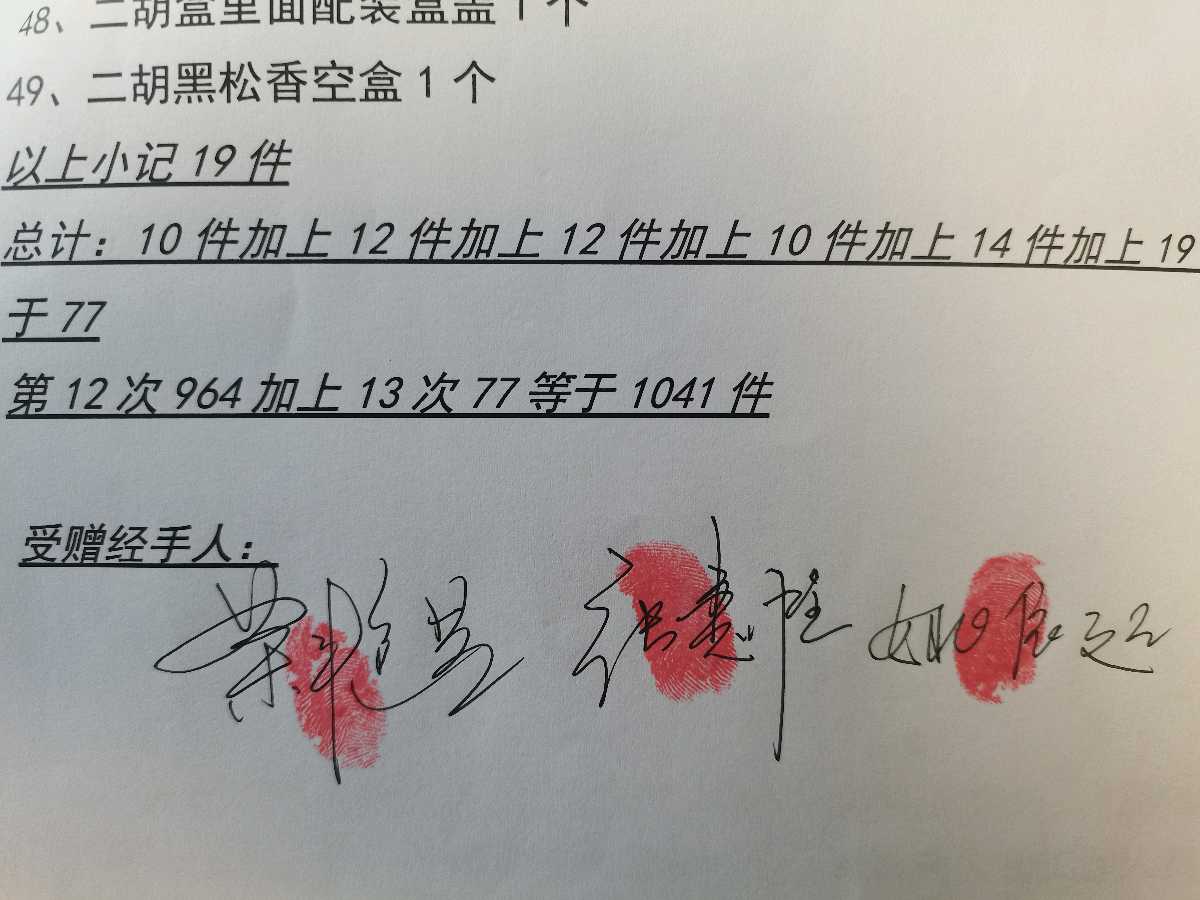 48、二胡盒里面配装盒盖1个
49、二胡黑松香空盒1个
以上小记19件
总计：10件加上12件加上12件加上10件加上14件加上19
于77
第12次964加上13次77等于1041件
受赠经手人：